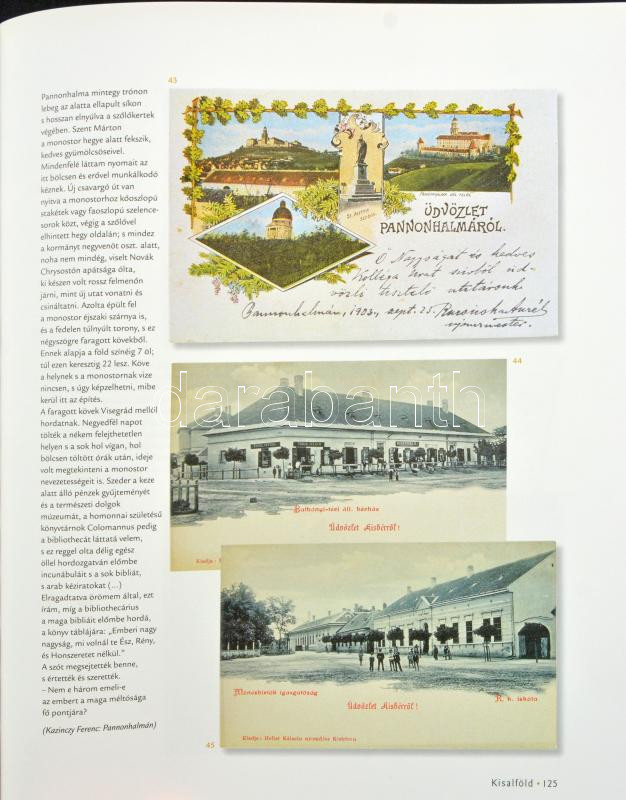 Pannonhalma mintegy trónon
lebeg az alatta ellapult síkon
s hosszan elnyúlva a szőlőkertek
végében. Szent Márton
a monostor hegye alatt fekszik,
kedves gyümölcseivel.
Mindenfelé láttam nyomait az
itt bölcsen és erővel munkálkodó
kéznek. Új csavargó út van
nyitva a monostorhoz kőoszlopú
stakéták vagy faoszlopú szelence-
sorok közt, végig a szőlővel
elhintett hegy oldalán; s mindez
a kormányt negyvenöt oszt. alatt,
noha nem mindég, viselt Novák
Chrysostón apátsága ólta,
ki készen volt rossz felmenőn
járni, mint új utat vonatni és
csináltatni. Azolta épült fel
a monostor éjszaki szárnya is,
és a fedelen túlnyúlt torony, s ez
négyszögre faragott kövekből.
Ennek alapja a föld színéig 7 öl;
túl ezen keresztig 22 lesz. Köve
a helynek s a monostornak vize
nincsen, s úgy képzelhetni, mibe
kerül itt az építés.
A faragott kövek Visegrád mellől
hordatnak. Negyedfél napot
tölték a nékem felejthetetlen
helyen s a sok hol vígan, hol
bölcsen töltött órák után, ideje
volt megtekinteni a monostor
nevezetességeit is. Szeder a keze
alatt álló pénzek gyűjteményét
és a természeti dolgok
múzeumát, a homonnai születésű
könyvtárnok Colomannus pedig
a bibliothecát láttatá velem,
s ez reggel olta délig egész
öllel hordozgatván előmbe
incunábuláit s a sok bibliát,
s arab kéziratokat (...)
Elragadtatva örömem által, ezt
írám, míg a bibliothecárius
a maga bibliáit előmbe hordá,
a könyv táblájára: „Emberi nagy
nagyság, mi volnál te Ész, Rény,
és Honszeretet nélkül.”
A szót megsejtették benne,
s értették és szerették.
– Nem e három emeli-e
az embert a maga méltósága
fő pontjára?
(Kazinczy Ferenc: Pannonhalmán)
43
ÜDVÖZLET
PANNONHALMÁRÓL.
Ő Nagyságát és kedves
Pannonhalmán, 1903. sept. 25.
44
darabanth
Batthányi-téri áll. bérház
Üdvözlet Kisbérről!
Kiadja:
Ménesbirtok igazgatóság
R. k. iskola
Üdvözlet Kisbérről!
Kiadja: Heller Kálmán nyomdász Kisbéren.
45
Kisalföld • 125